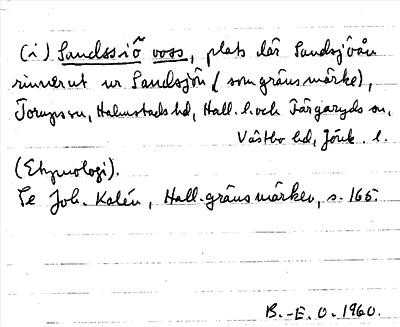 (i) Sandssiõ voss, plats där Sandsjöån
rinner ut ur Sandsjön (som gränsmärke),
Torups sn, Halmstads hd, Hall. l. och Färgaryds sn,
Västbo hd, Jönk. l.
(Etymologi).
Se Joh. Kalén, Hall. gränsmärken, s. 165.
B.-E. O. 1960.